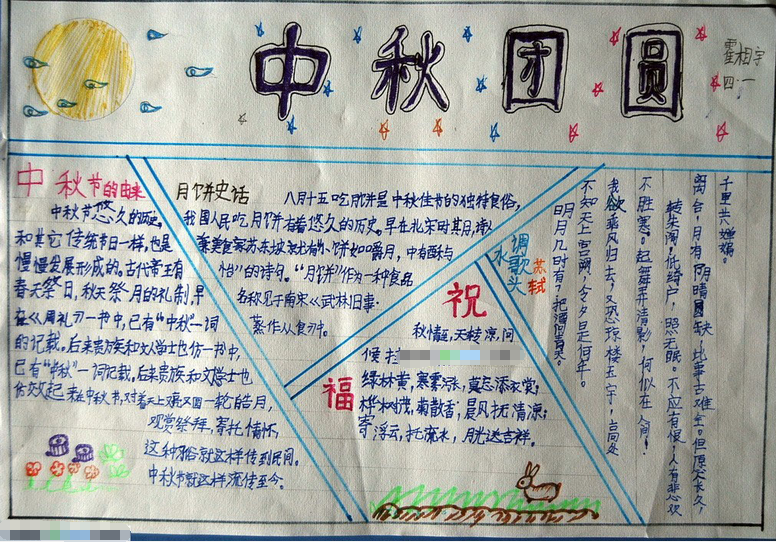 中秋团圆
霍相宇
四·一
中秋节的由来
中秋节悠久的历史,
和其它传统节日一样,也是
慢慢发展形成的。古代帝王有
春天祭日,秋天祭月的礼制,早
在《周礼》一书中,已有"中秋"一词
的记载。后来贵族和文人学士也仿一书中,
已有"中秋"一词记载。后来贵族和文人学士也
仿效起来在中秋节,对着天上又圆一轮皓月,
观赏祭拜,寄托情怀,
这种习俗就这样传到民间。
中秋节就这样流传至今。
月饼史话
八月十五吃月饼是中秋佳节的独特食俗,
我国人民吃月饼有着悠久的历史。早在北宋时其月,诗人
美食家苏东坡就有"小饼如嚼月,中有酥与
怡"的诗句。"月饼"作为一种食品
名称见于南宋《武林旧事·
蒸作从食》中。
祝福
秋情延,天转凉,问
候
绿林黄,寒雾涨,莫忘添衣裳;
桦树茂,菊散香,晨风抚清凉;
寄浮云,托流水,月光送吉祥。
水调歌头
苏轼
明月几时有?把酒问青天。
不知天上宫阙,今夕是何年。
我欲乘风归去,又恐琼楼玉宇,高处
不胜寒。起舞弄清影,何似在人间!
转朱阁,低绮户,照无眠。不应有恨,人有悲欢
离合,月有阴晴圆缺,此事古难全。但愿人长久,
千里共婵娟。